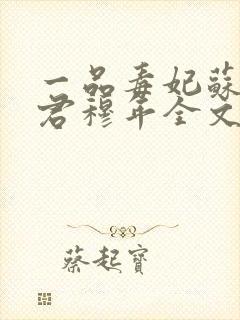 一品毒妃蘇
君穆年全文
蔡起寶